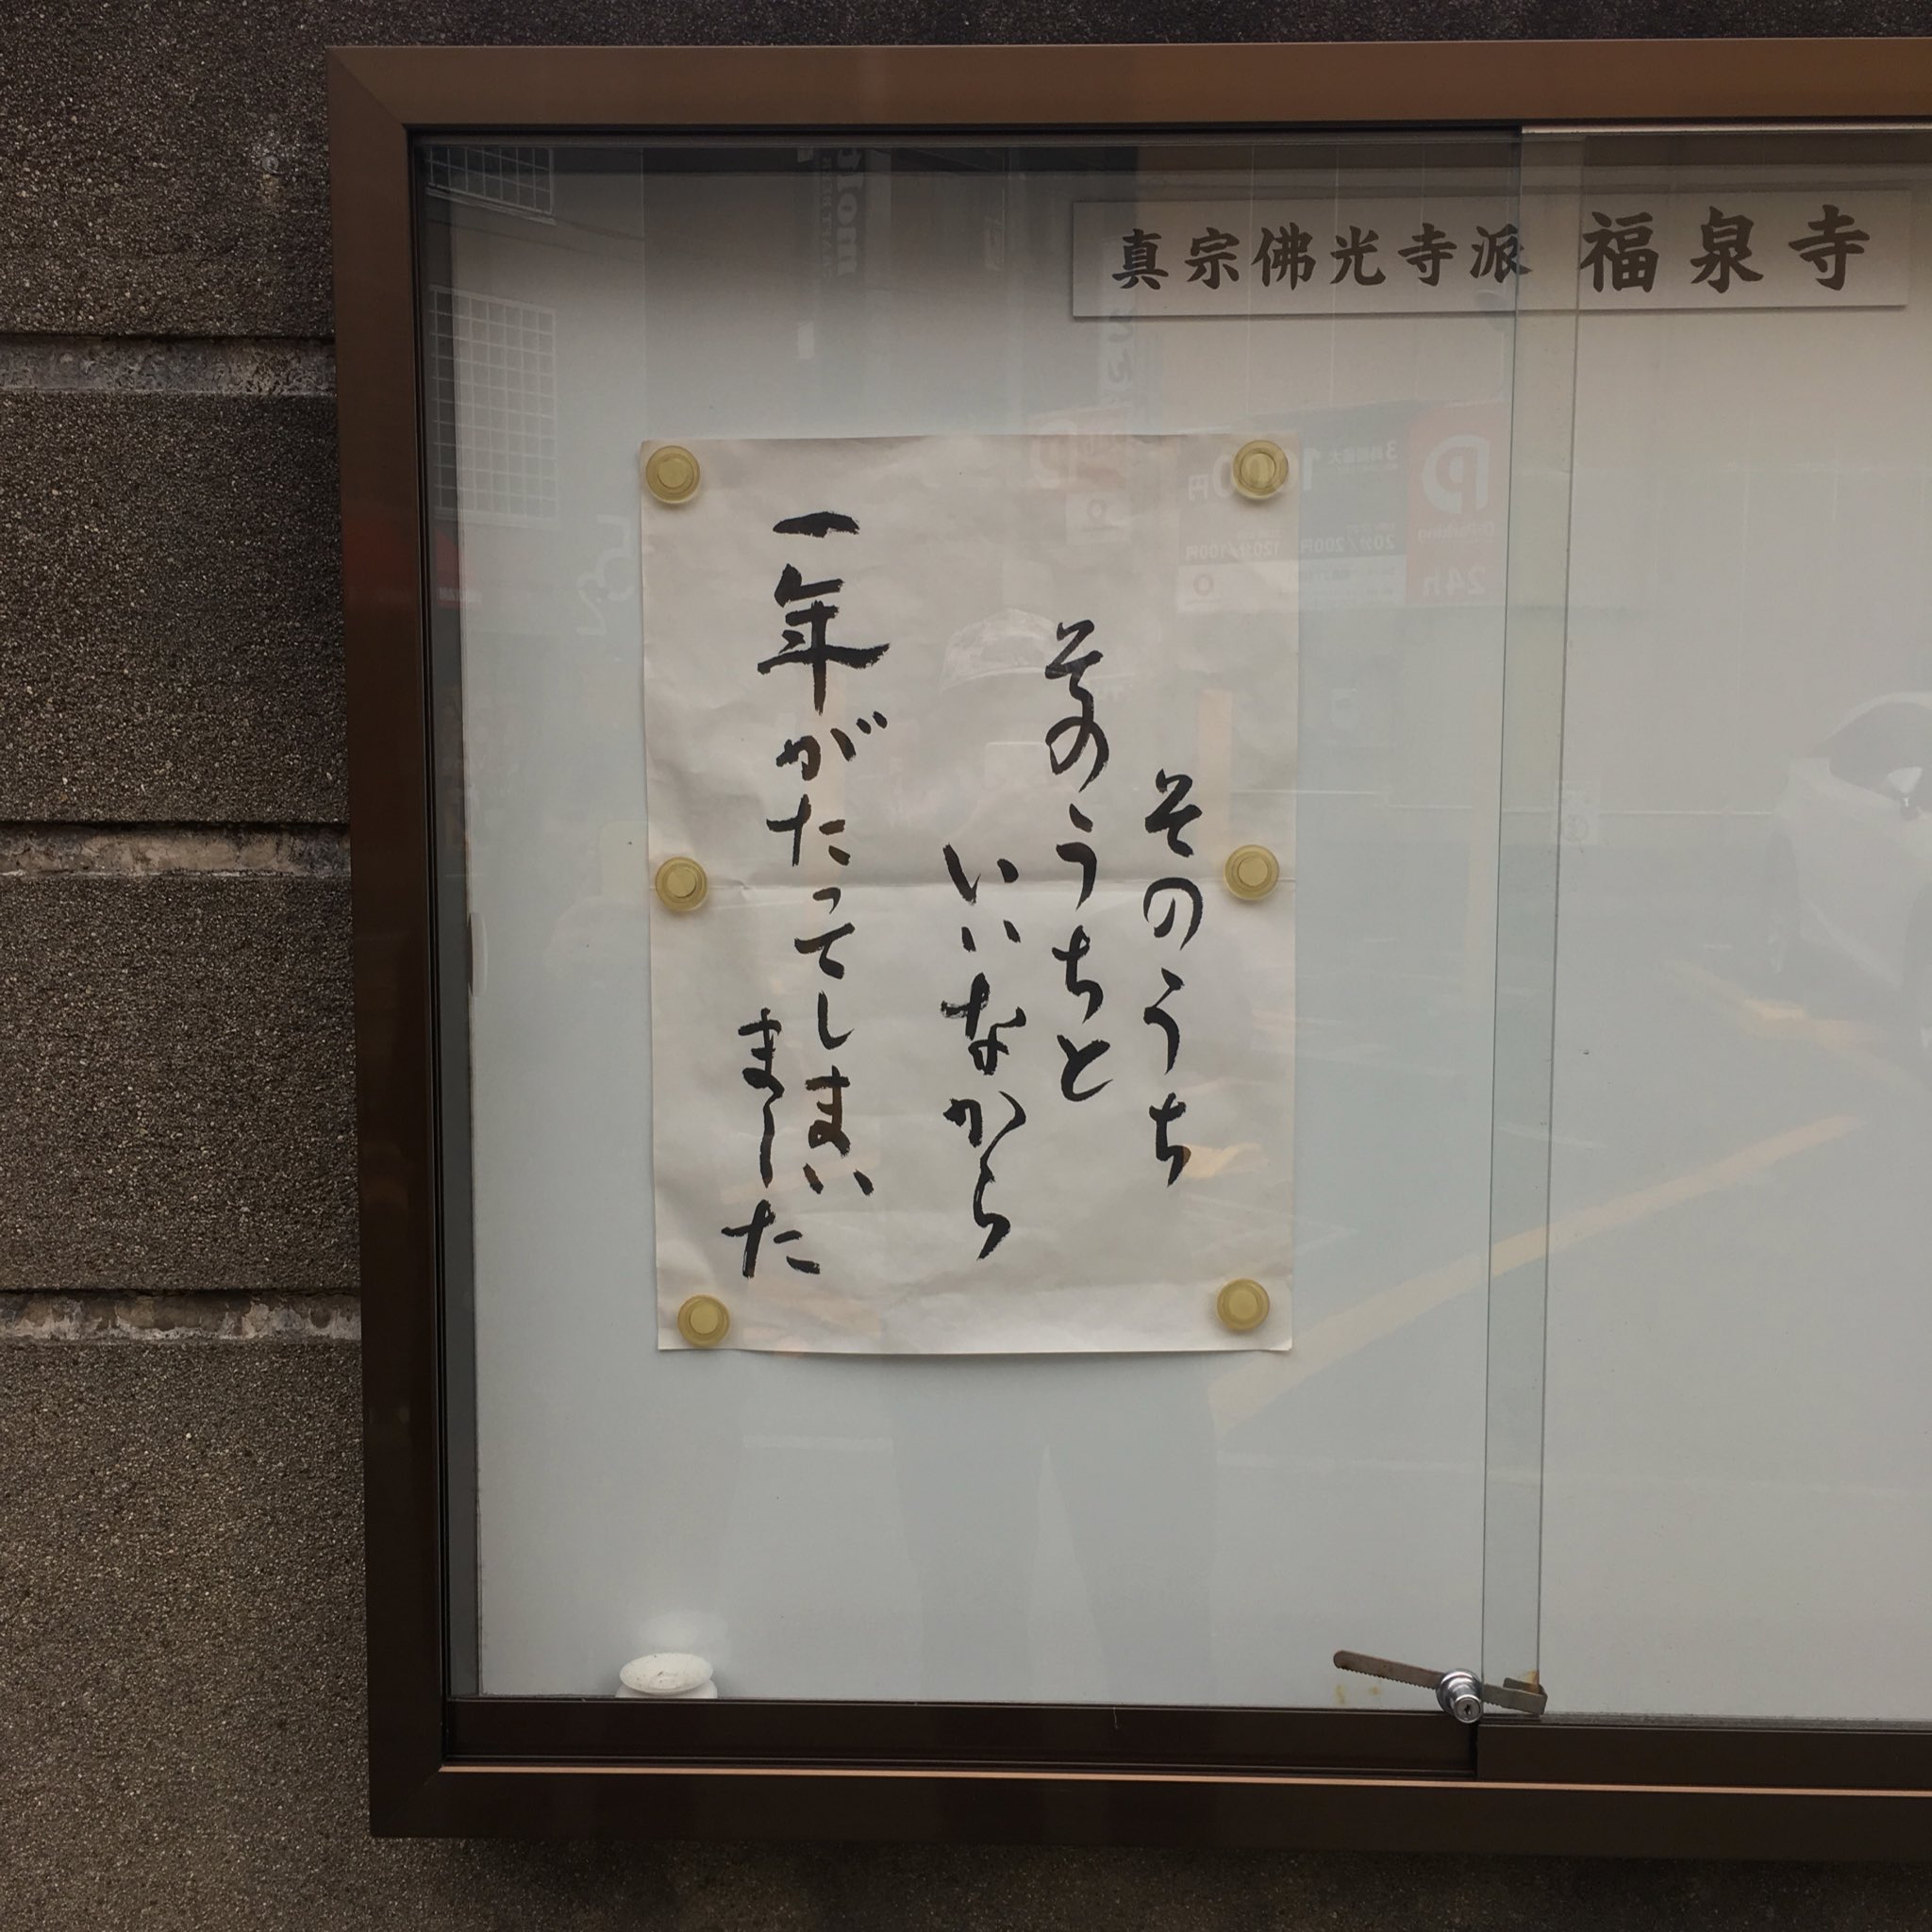 真宗佛光寺派 福泉寺
そのうち
そのうちと
いいながら
一年がたってしまい
ました